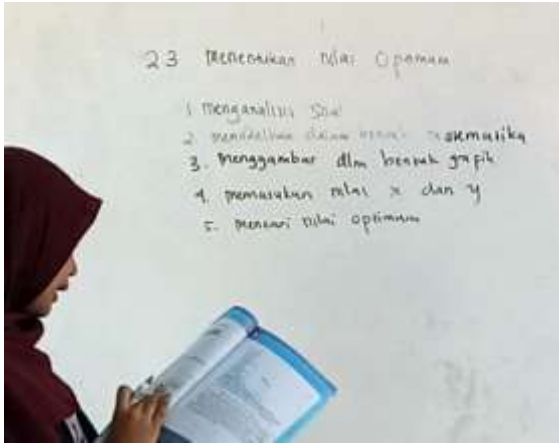 2.3 Menentukan nilai Optimum
1. Menganalisis Soal
2. memodelkan dalam bentuk matematika
3. Menggambar dlm bentuk grafik
4. Memasukan nilai x dan y
5. Mencari nilai optimum